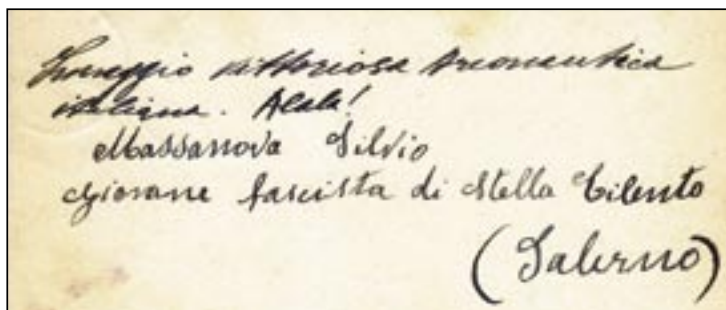 Inneggio vittoriosa Areonautica
italiana. Alalà!
Massanova Silvio
Giovane fascista di Stella Cilento
(Salerno)